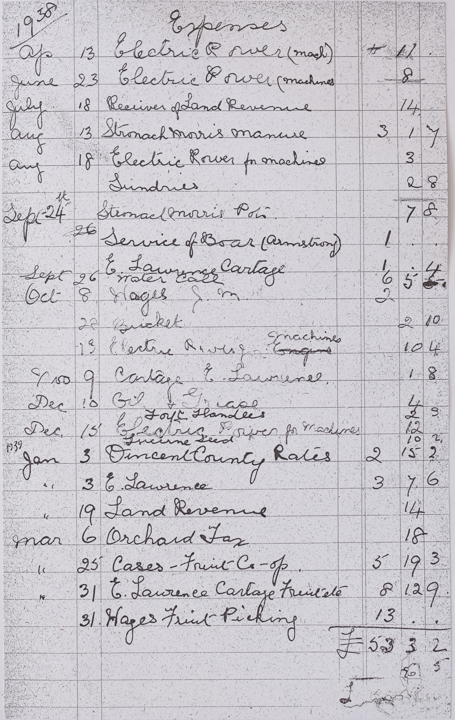 1938
Expenses
Ap 13 Electric Power (mach) 11 .
June 23 Electric Power (machines 8
July 18 Receiver of Land Revenue 14
Aug 13 Stronach Morris manure 3 1 7
Aug 18 Electric Power for machines 3
Sundries 2 8
Sept 24th Stronach Morris Pots. 7 8
26 Service of Boar (Armstrong) 1 . .
E. Lawrence Cartage 1 . 4
Sept 26 Water Rate 6 5
Oct 8 Wages J. M. 2
28 Bucket 2 10
machines
13 Electric Power for Engine 10 4
Nov 9 Cartage E. Lawrence. 1 8
Dec 10 Oil & Grease 4
Fork Handles 2 9
Dec. 15 Electric Power for Machines 12
Lucerne Seed 10 2
1939
Jan 3 Vincent County Rates 2 15 2
" 3 E. Lawrence 3 7 6
" 19 Land Revenue 14
Mar 6 Orchard Tax 18
" 25 Cases - Fruit Co-op. 5 19 3
" 31 E. Lawrence Cartage Fruit etc 8 12 9.
31. Wages Fruit Picking 13 . .
£ 53 3 2
5
£